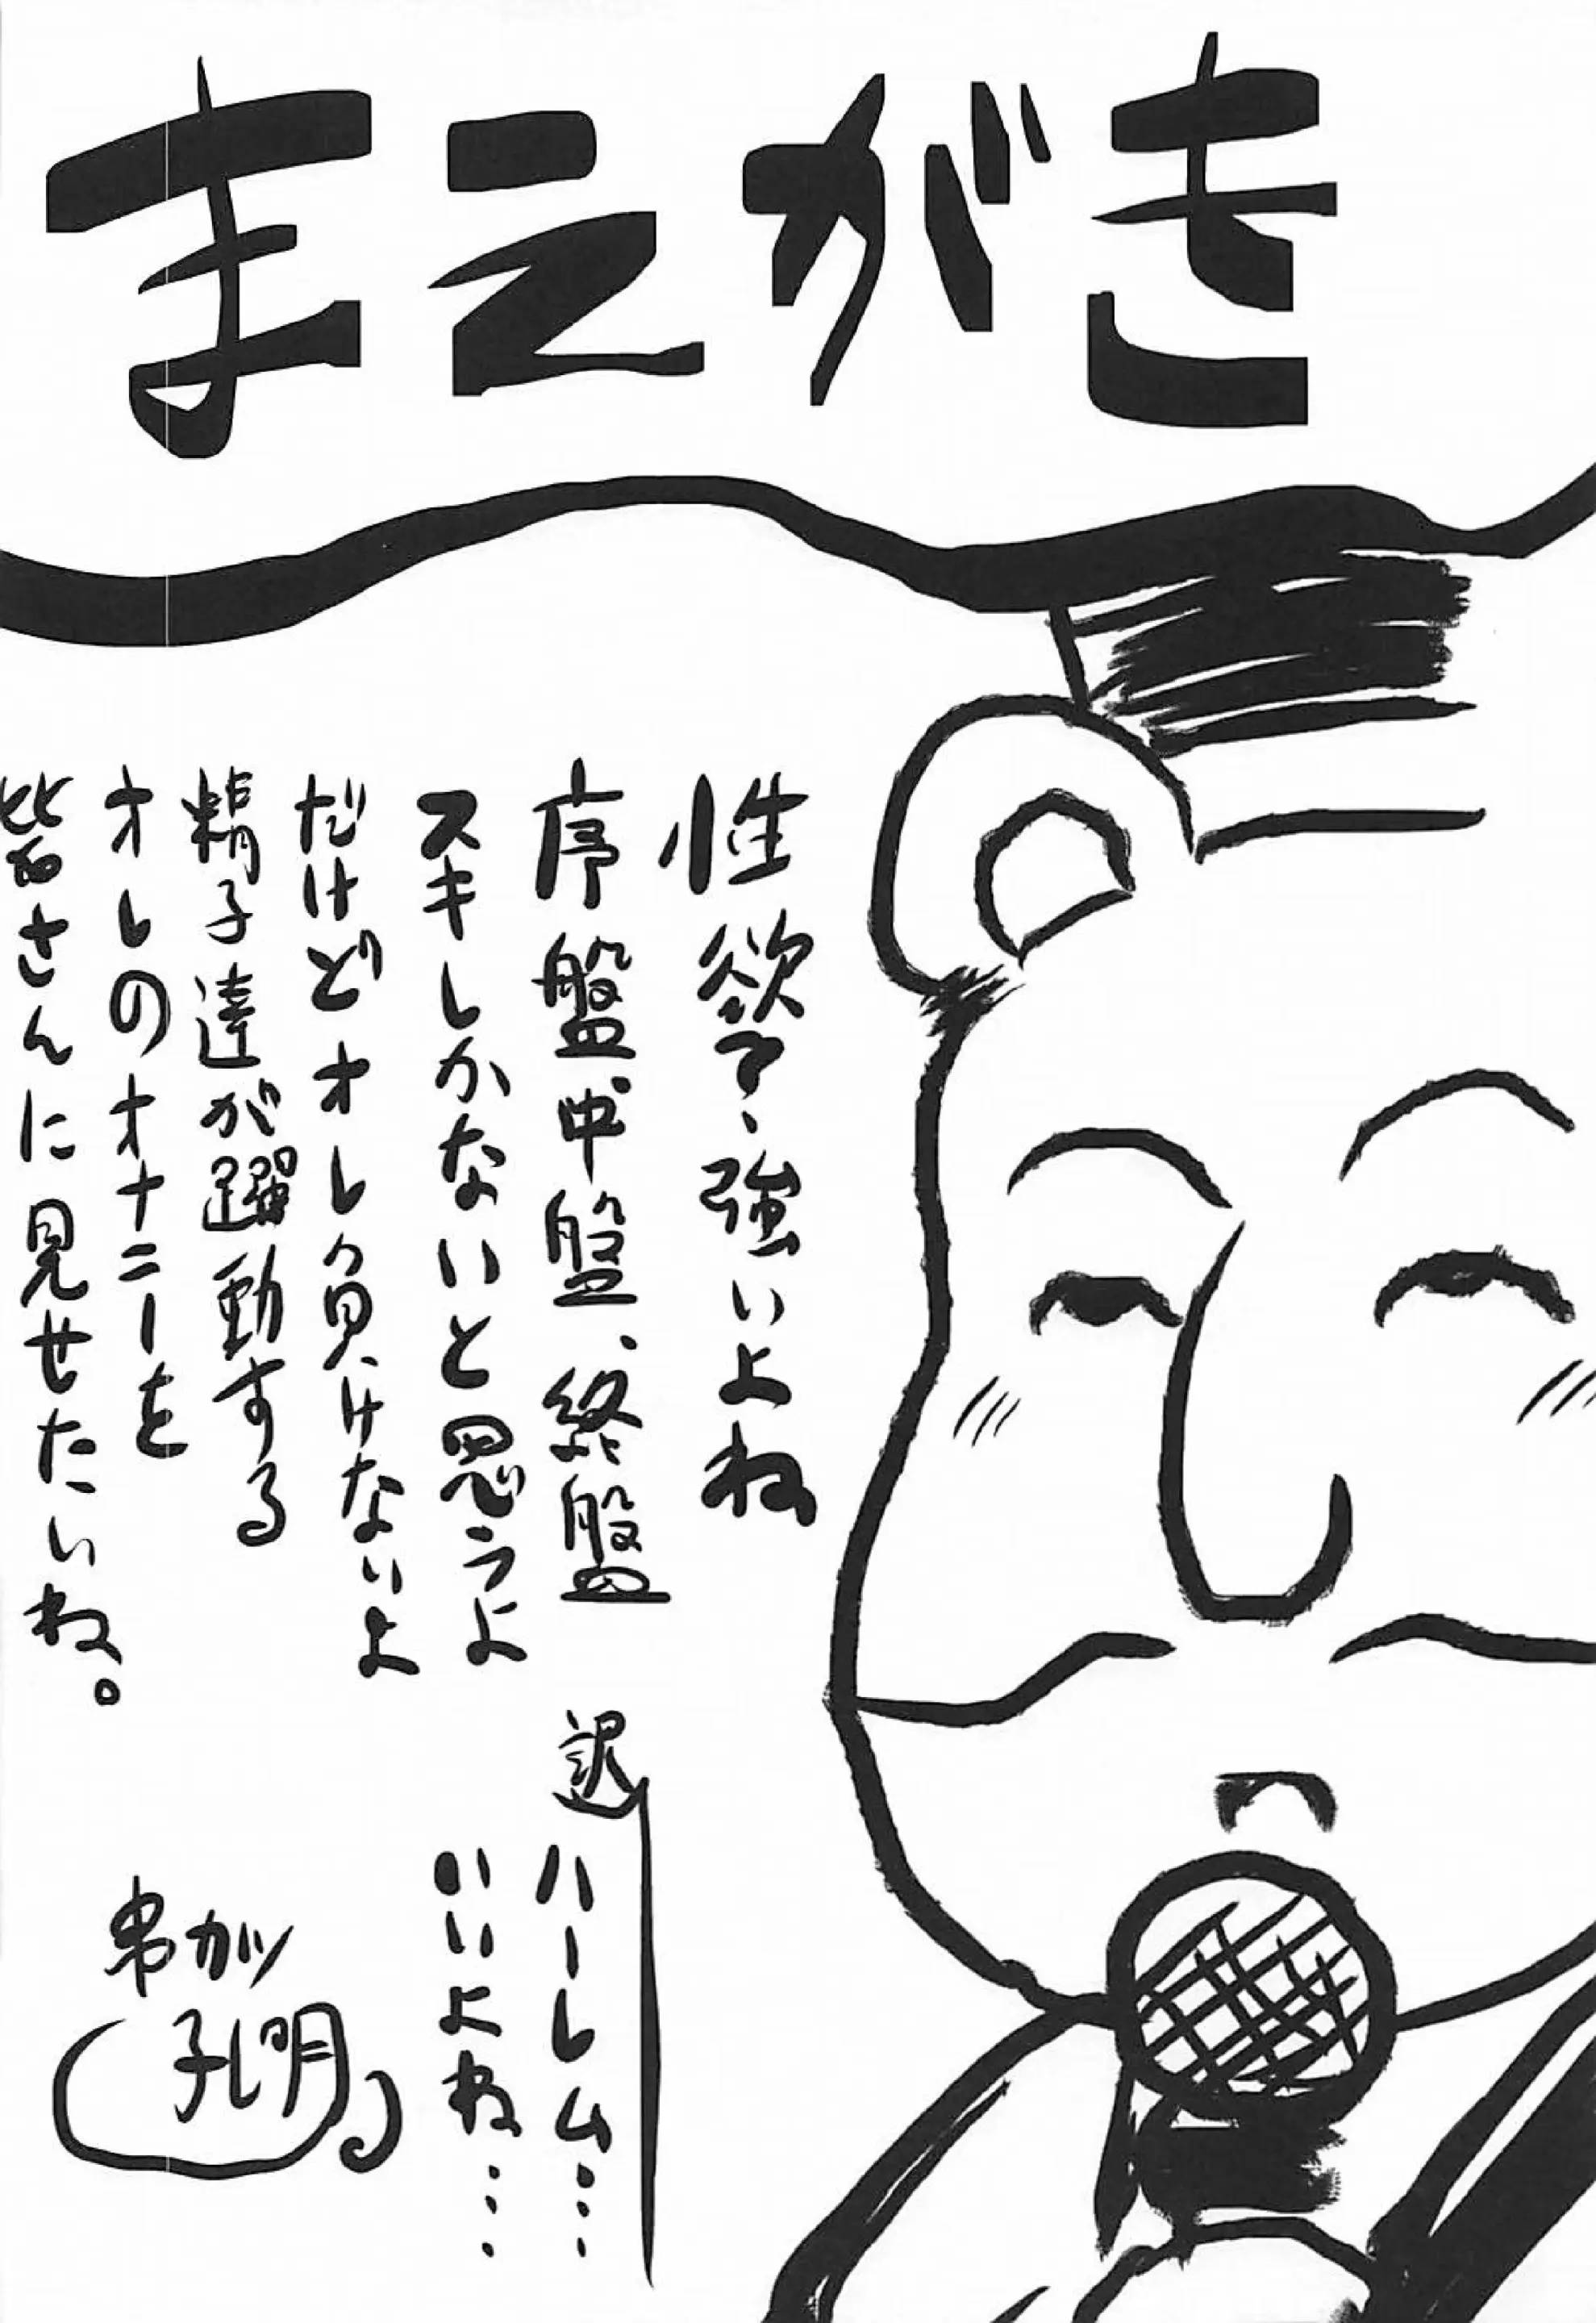 まえがき
性欲、強いよね
序盤、中盤、終盤
スキしかないと思うよ
だけどオレ負けないよ
精子達が躍動する
オレのオナニーを
皆さんに見せたいね。
訳
ハーレム……
いいよね……
串カツ
孔明